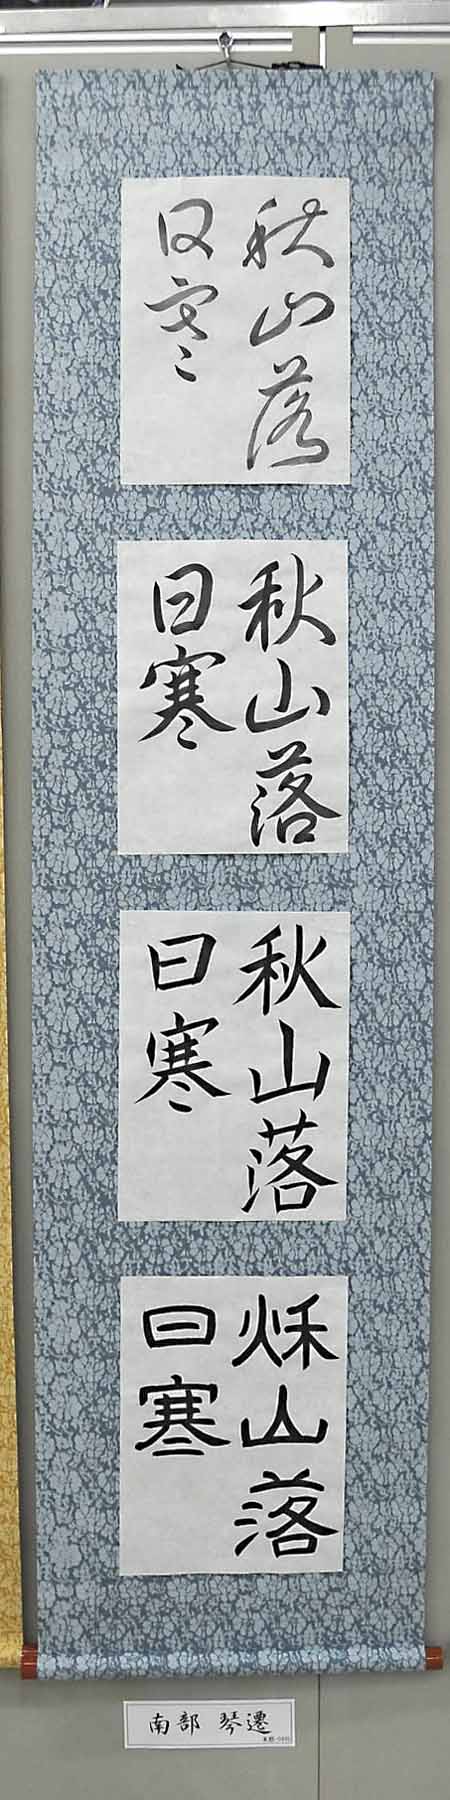 秋山落
日寒
秋山落
日寒
秋山落
日寒
秌山落
日寒
南部 琴遷